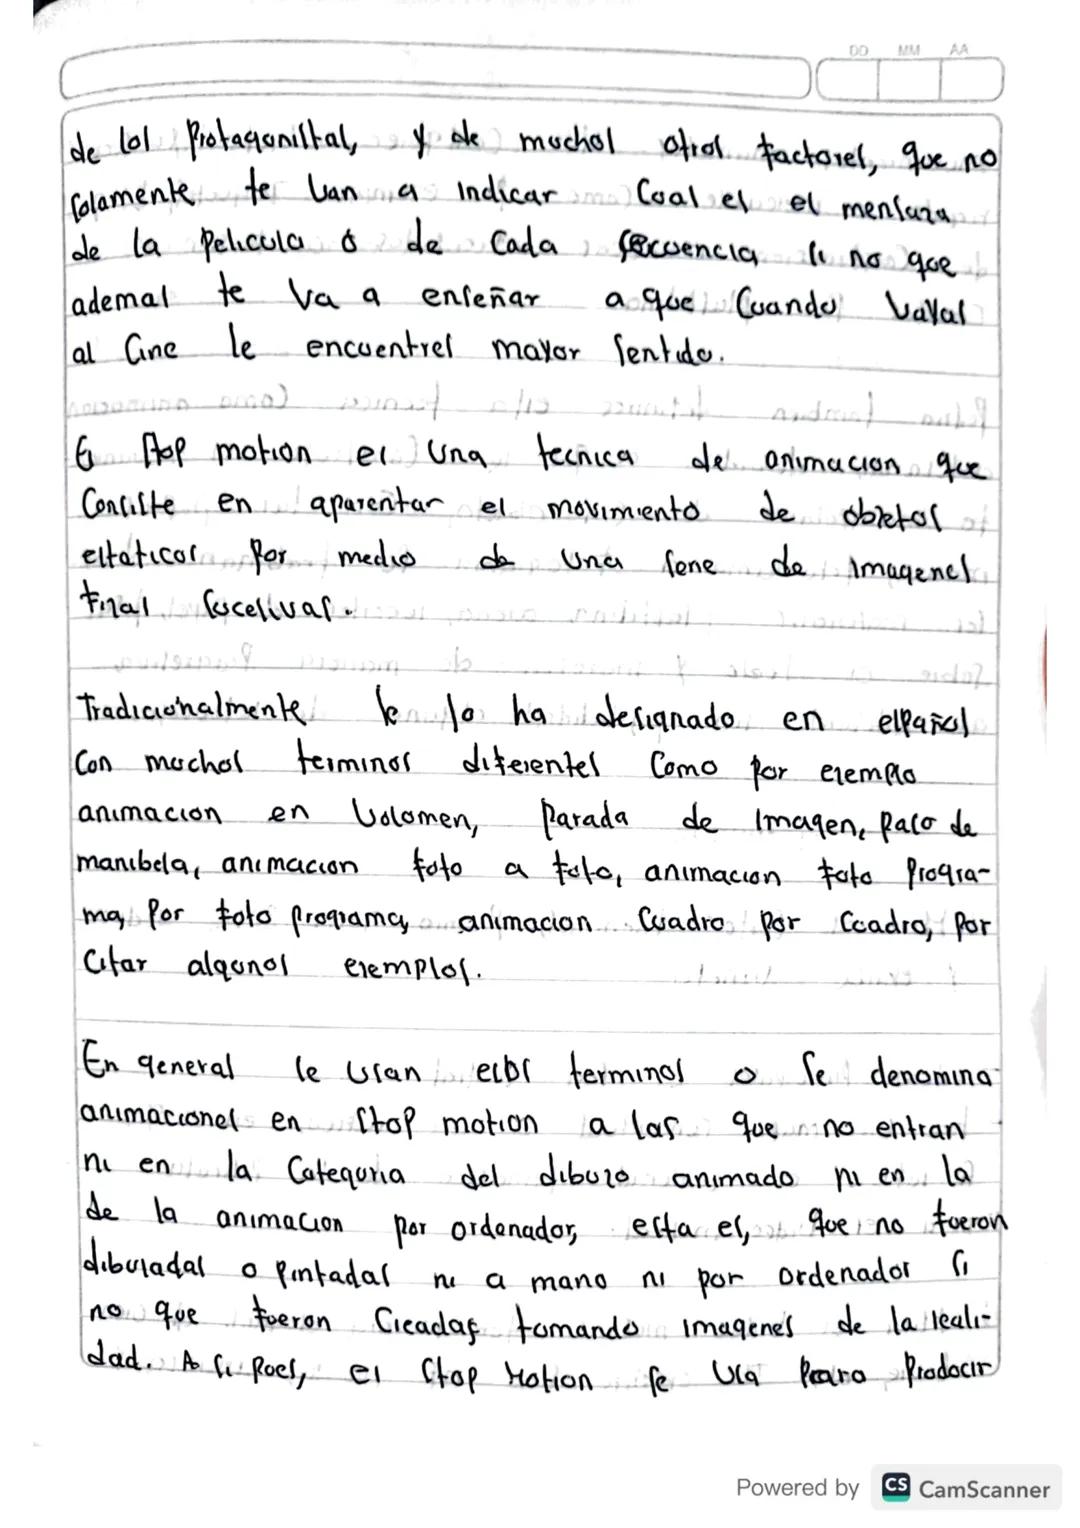 DD MM AA
de los Protagonistas, y de muchos otros factores, que no
solamente te van a indicar Cual es el mensaza
de la Pelicula o de Cada secuencia si no que
ademas te va a enseñar a que Cuando vayas
al Cine le encuentres mayor Sentido.
El Stop motion es una tecnica de animacion que
Consiste en aparentar el movimiento de objetos
estaticos por medio de una serie de imagenes
final sucesivas.
Tradicionalmente se lo ha designado en español
Con muchos terminos diferentes Como por ejemplo
animacion en volumen, Parada de Imagen, paso de
manibela, animacion foto a foto, animacion foto Progra-
ma, Por foto programa, animacion Cuadro por Cuadro, Por
Citar algunos ejemplos.
En general se usan esos terminos o se denomina
animaciones en Stop motion a las que no entran
ni en la Categoria del dibujo animado ni en la
de la animacion por ordenador, esta es, que no fueron
dibujadas o Pintadas ni a mano ni por ordenador si
no que fueron Creadas tomando imagenes de la reali-
dad. A si Pues, el Stop Motion se usa Para Producir
Powered by CS CamScanner